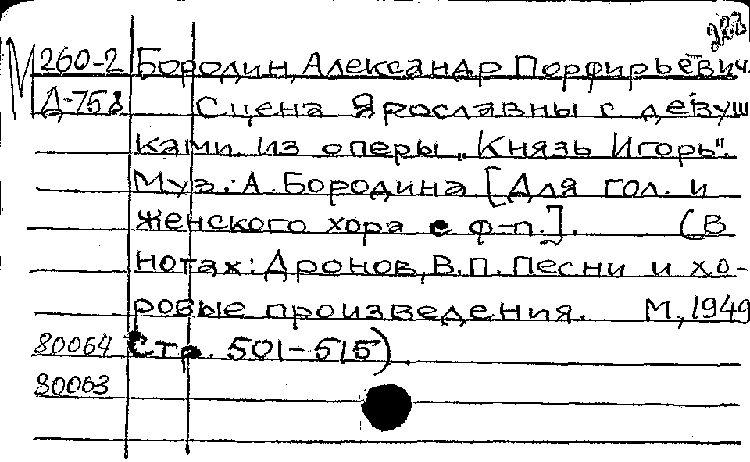 223
М 260-2 Бородин, Александр Порфирьевич.
Д-758 Сцена Ярославны с девуш
ками из оперы „Князь Игорь".
Муз.: А. Бородина [Для гол. и
женского хора с ф-п.]. (В
нотах: Дронов, В.П. Песни и хо-
ровые произведения. М, 1949
80064 Стр. 501-515)
80063